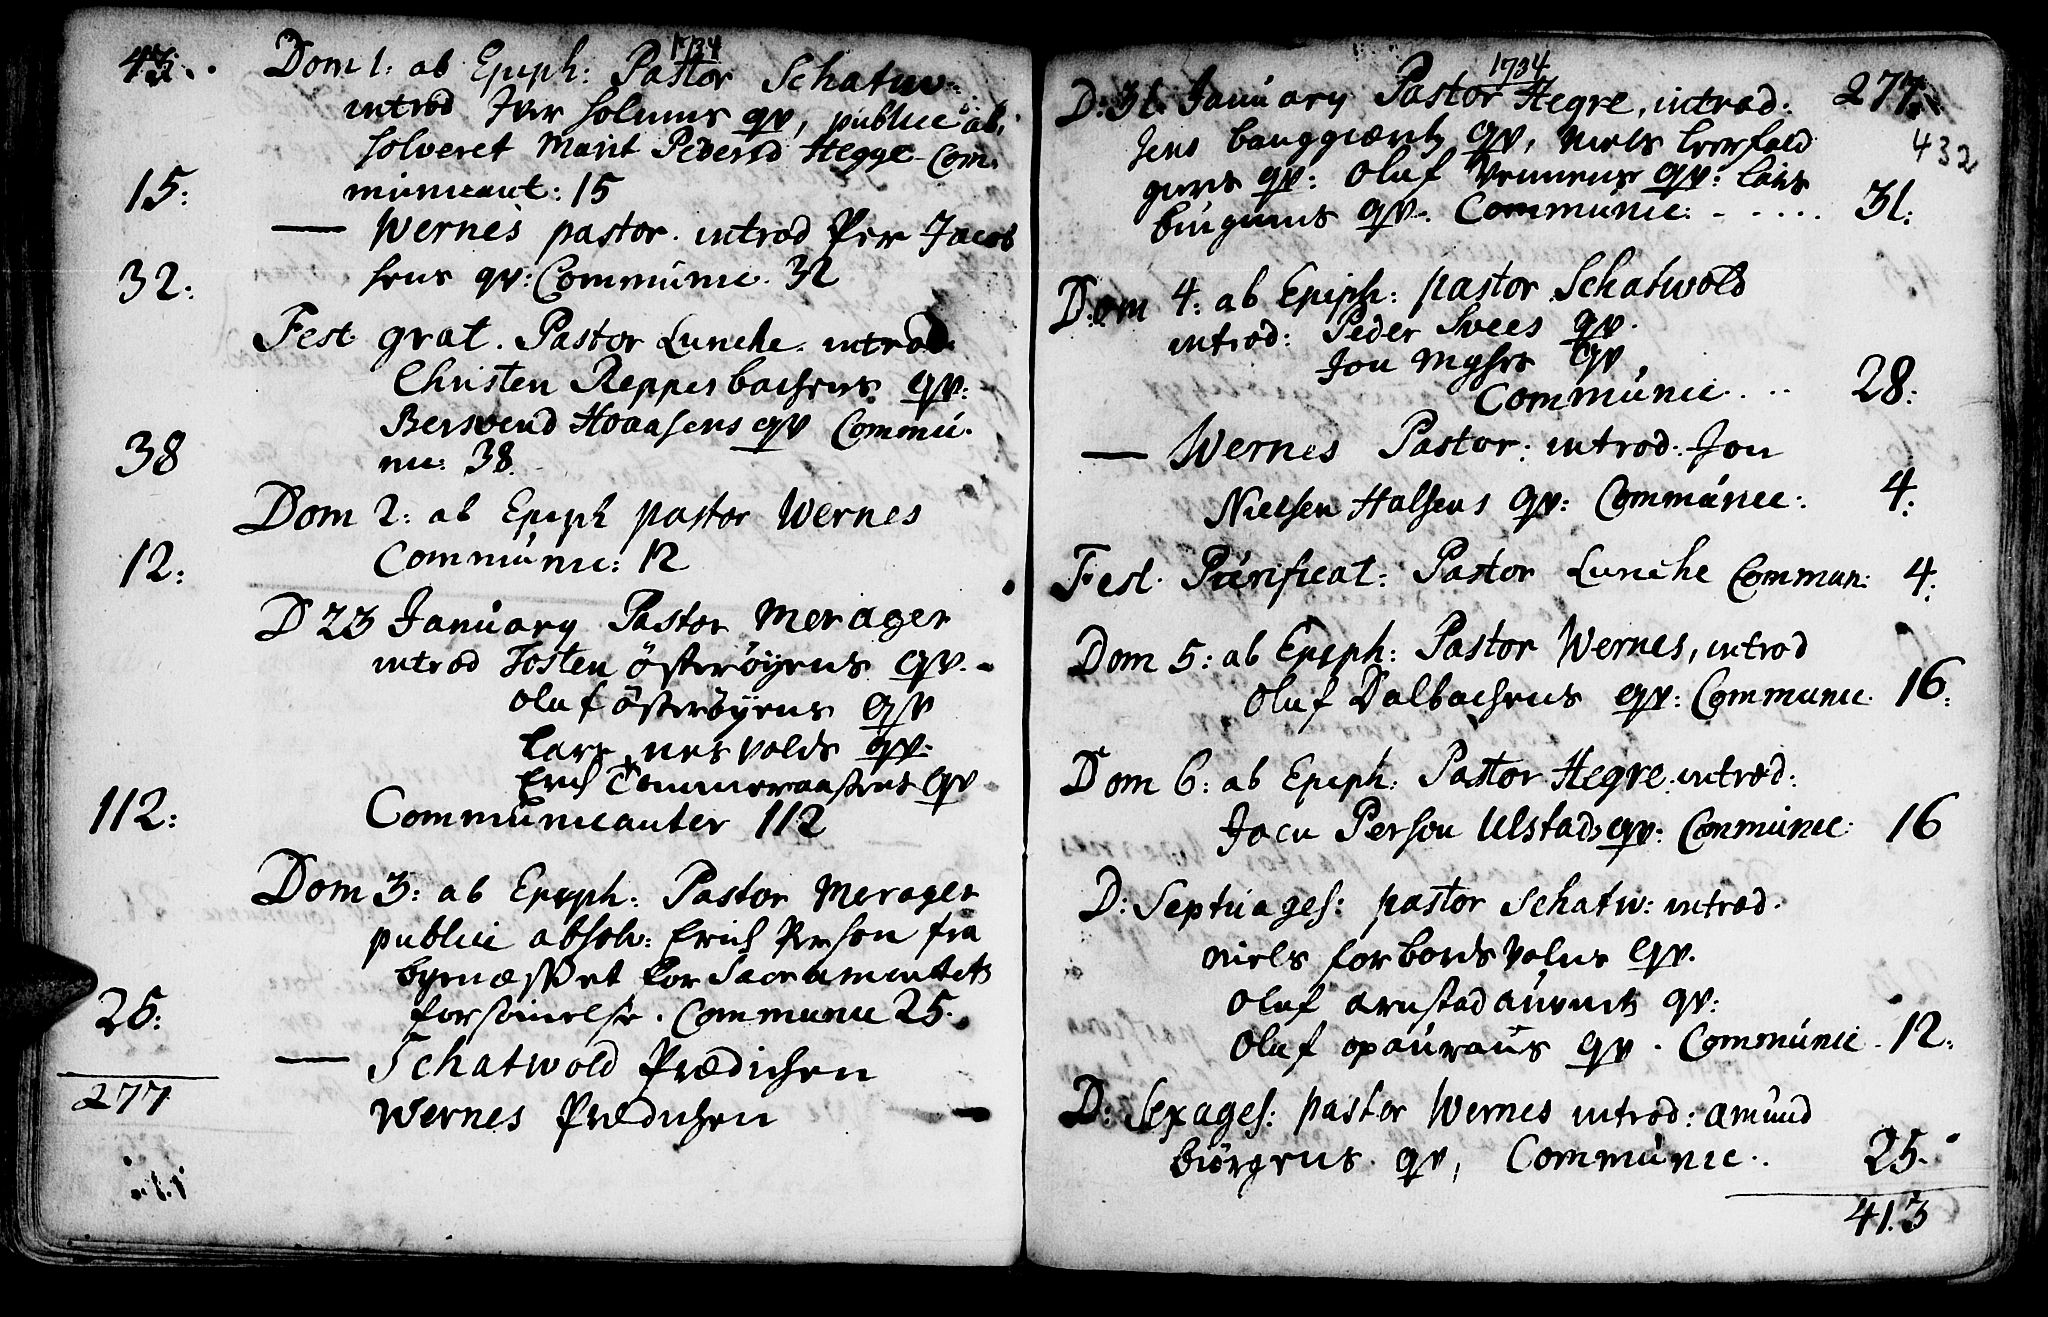 1734
43. Dom 1: ab Epiph: Pastor Schatw:
introd Iver solums qv, publice ab,
solveret Marit Pedersd Hegge Com.
15: municant: 15
— Wernes pastor. introd Per Jacob
32: sens qv: Communic. 32
Fest grat. Pastor Lunche. introd.
Christen Reppesbachens qv:
Bersvend Hoaasens qv Commu.
38 nic: 38.
Dom 2: ab Epiph pastor Wernes
12: Communic: 12
D 23 January Pastor Merager
introd Tosten österöyens qv.
Oluf österöyens qv
Lars nesvolds qv:
Erich Tommeraasens qv
112: Communicanter 112
Dom 3: ab Epiph: Pastor Merager
publice absolv: Erich Persen fra
byenæsset for Sacramentets
25: forsömelse. Communic 25.
— Schatwold Prædichen
277 Wernes Prædichen
1734
D: 31 January Pastor Hegre, introd: 277.
432
Jens qv, Niels
gens qv: Oluf Vennens qv: Lars
qv. Communic: 31:
Dom 4: ab Epiph: pastor Schatwold
introd: Peder Svees qv.
Jon Myhrs qv
Communic... 28:
— Wernes Pastor: introd: Jon
Nielsen Halsens qv: Communic: 4:
Fest. Purificat: Pastor Lunche Commun: 4:
Dom 5: ab Epiph: Pastor Wernes, introd
Oluf Dalbachens qv: Communic. 16:
Dom 6: ab Epiph: Pastor Hegre. introd:
Jocu Person Ulstads qv: Communic: 16
D: Septuages: pastor Schatw: introd.
Niels forbords Volns qv.
Oluf arnstad qv:
Oluf qv. Communic. 12:
D: Sexages: pastor Wernes introd: Amund
Biörgens qv, Communic.. 25.
413